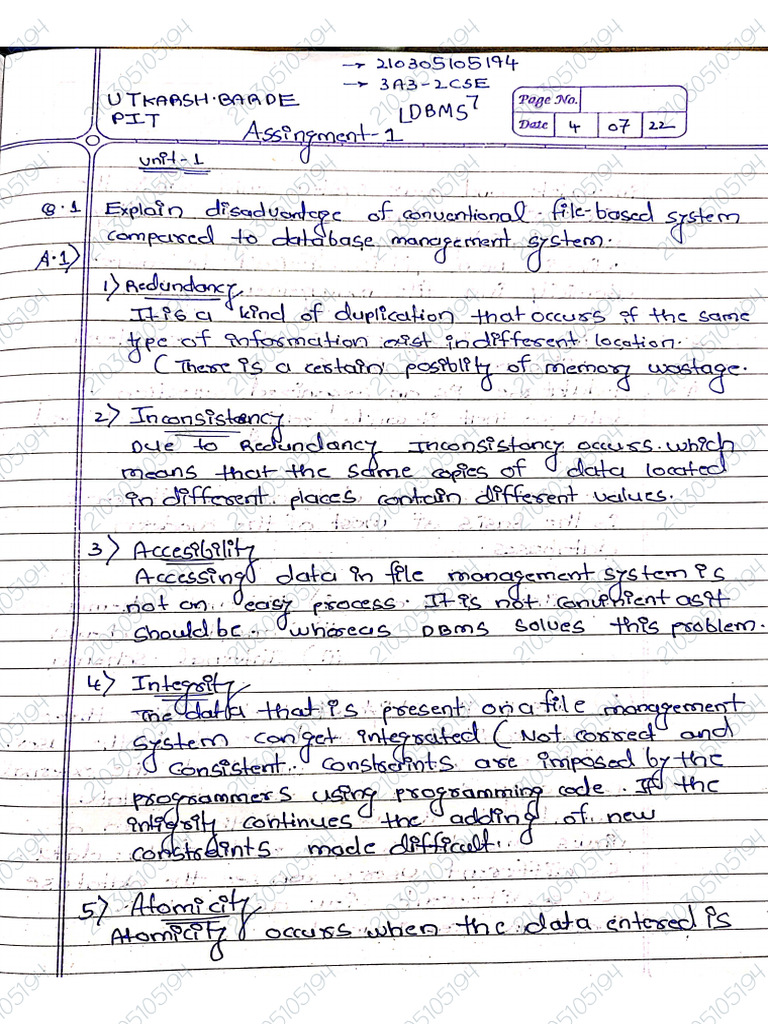 → 210305105194
→ 3A3-2CSE
UTKARSH.BARDE
PIT
[DBMS]
Page No.
Date 4 07 22
Assingment-1
Unit-1
Q.1 Explain disadvantage of conventional file-based system
compared to database management system.
A.1)
1) Redundancy
It is a kind of duplication that occurs if the same
type of information exist in different location.
(There is a certain posiblity of memory wastage.
2) Inconsistency
Due to Redundancy Inconsistancy occurs which
means that the same copies of data located
in different places contain different values.
3) Accesibility
Accessing data in file management system is
not an easy process. It is not convinient as it
should be. whereas DBMS solves this problem.
4) Integrity
The data that is present on a file management
system can get integrated (Not correct and
consistent constraints are imposed by the
programmers using programming code. If the
integrity continues the adding of new
constraints made difficult.
5) Atomicity
Atomicity occurs when the data entered is
210305105194